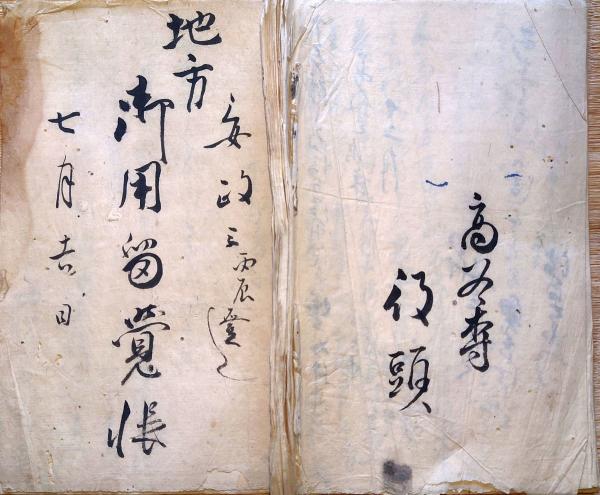 安政三丙辰
地方
御用留覺帳
七月吉日
高
役頭